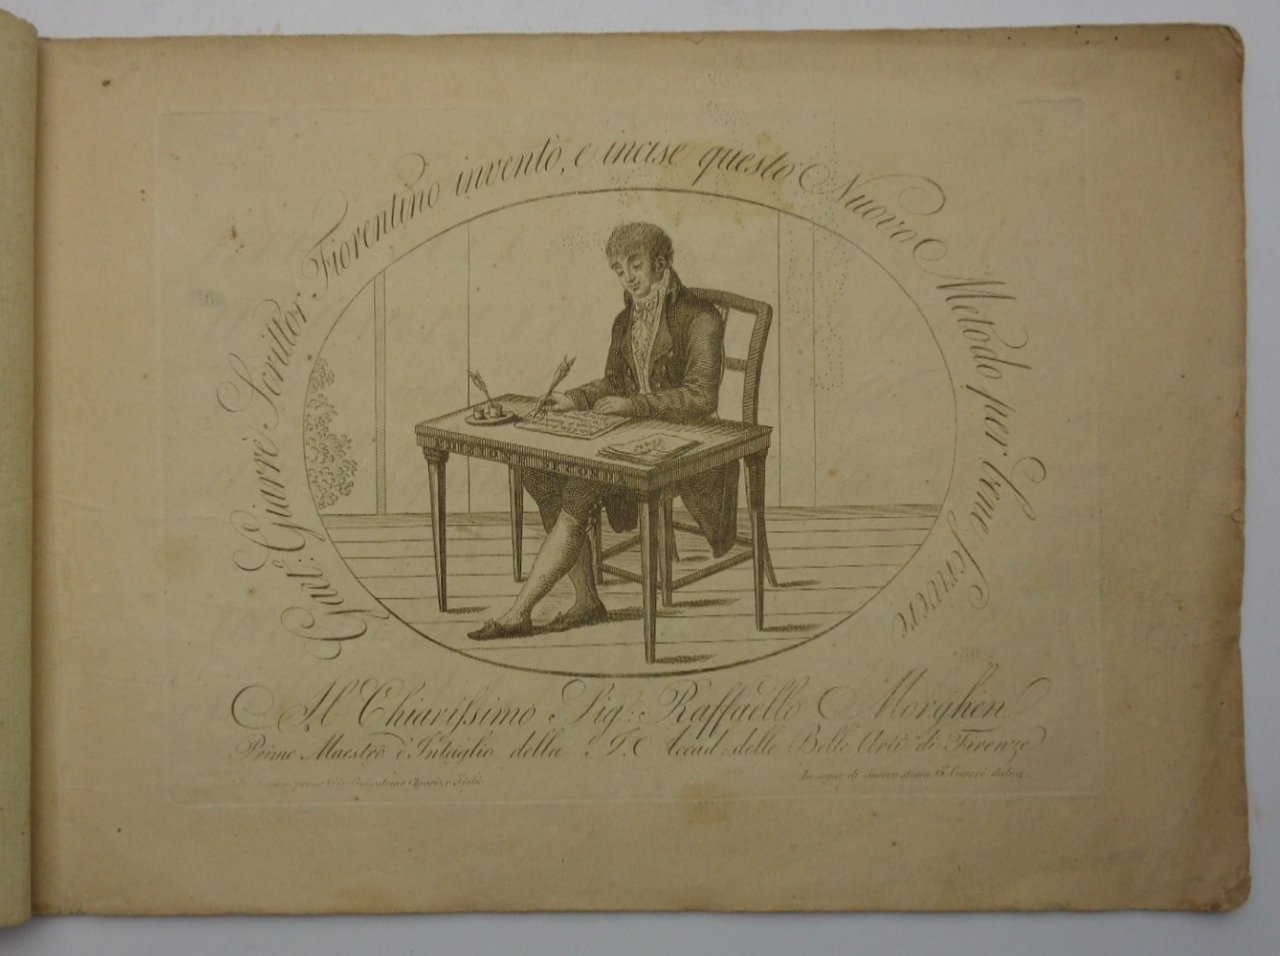 Gaet: Giarrè Scrittor Fiorentino inventò, e incise questo Nuovo Metodo per bene Scrivere
Al Chiarissimo Sig: Raffaello Morghen
Primo Maestro d'Intaglio della I. Accad. delle Belle Arti di Firenze
presso
In segno di sincera stima G. Giarrè dedica